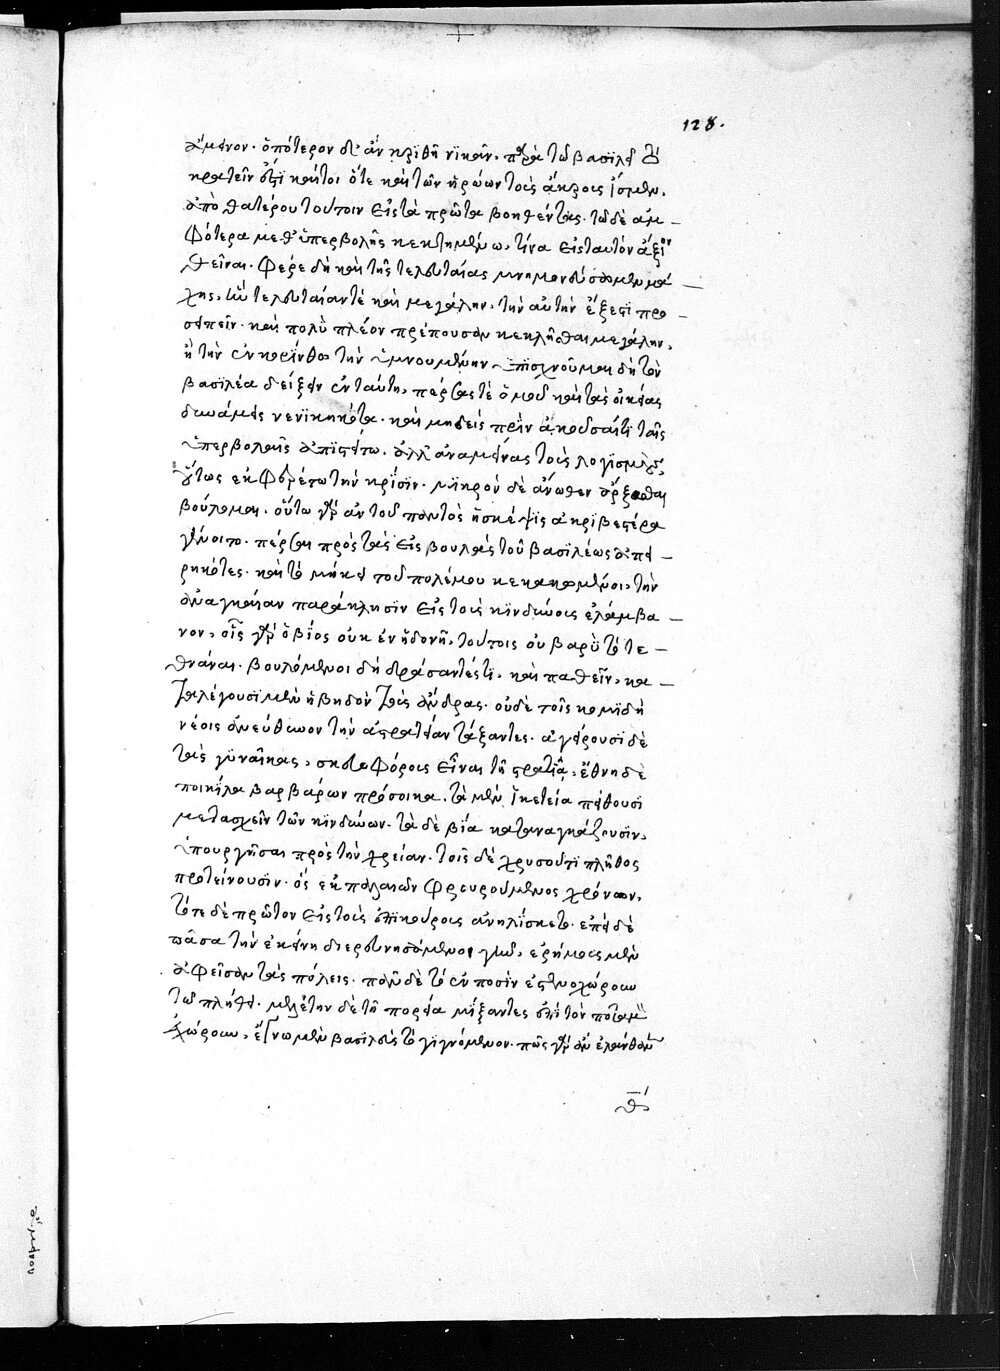 128.
ἄμεινον. ὁπότερον δ' ἂν κριθῆ νικᾶν. παρὰ τῶ βασιλεῖ τὸ
κρατεῖν ἐστὶ καίτοι ὅτε καὶ τῶν ἡρώων τοὺς ἄκρους ἴσμεν.
ἀπὸ θατέρου τούτοιν εἰς τὰ πρῶτα βοηθέντας. τῶ δὲ ἀμ–
φότερα μεθ' ὑπερβολῆς κεκτημένω, τίνα εἰς ταυτὸν ἄξιον
θεῖναι. φέρε δὴ καὶ τῆς τελευταίας μνημονεύσωμεν μά–
χης, ἣν τελευταίαν τὲ καὶ μεγάλην. τὴν αὐτὴν ἔξεστι προ–
σειπεῖν. καὶ πολὺ πλέον πρέπουσαν κεκλῆσθαι μεγάλην.
ἢ τὴν ἐν κορίνθω τὴν ὑμνουμένην ὑπισχνοῦμαι δὴ τὸν
βασιλέα δείξειν ἐν ταύτη, πέρσας τὲ ὁμοῦ καὶ τὰς οἰκείας
δυνάμεις νενικηκότα. καὶ μηδεὶς πρὶν ἀκοῦσαί τι ταῖς
ὑπερβολαῖς ἀπιστείτω. ἀλλ' ἀναμείνας τοὺς λογισμοὺς,
οὕτως ἐκφερέτω τὴν κρίσιν. μικρὸν δὲ ἄνωθεν ἄρξασθαι
βούλομαι. οὕτω γὰρ ἂν τοῦ παντὸς ἡ σκέψις ἀκριβεστέρα
γένοιτο. πέρσαι πρὸς τὰς εἰσβολὰς τοῦ βασιλέως ἀπει–
ρηκότες. καὶ τῶ μήκει τοῦ πολέμου κεκακωμένοι, τὴν
ἀναγκαίαν παράκλησιν εἰς τοὺς κινδύνους ἐλάμβα–
νον, οἷς γὰρ ὁ βίος οὐκ ἐν ἡδονῆ, τούτοις οὐ βαρὺ τὸ τε–
θνάναι. βουλόμενοι δὴ δράσαντές τι, καὶ παθεῖν, κα–
ταλέγουσι μὲν ἡβηδὸν τοὺς ἄνδρας. οὐδὲ τοῖς κομιδῆ
νέοις ἀνεύθυνον τὴν ἀστρατείαν τάξαντες. ἀγείρουσι δὲ
τὰς γυναῖκας, σκευοφόρους εἶναι τῆ στρατιᾶ, ἔθνη δὲ
ποικίλα βαρβάρων πρόσοικα. τὰ μὲν ἱκετεία πείθουσι
μετασχεῖν τῶν κινδύνων. τὰ δὲ βία καταναγκάζουσιν,
ὑπουργῆσαι πρὸς τὴν χρείαν. τοῖς δὲ χρυσοῦ τι πλῆθος
προτείνουσιν. ὃς ἐκ παλαιῶν φρουρούμενος χρόνων,
τότε δὲ πρῶτον εἰς τοὺς ἐπικούρους ἀνηλίσκετο. ἐπεὶ δὲ
πᾶσαν τὴν ἐκείνη διερευνησάμενοι γῆν, ἐρήμους μὲν
ἀφεῖσαν τὰς πόλεις. πᾶν δὲ τὸ ἐν ποσὶν ἐστενοχώρουν
τῶ πλήθει. μελέτην δὲ τῆ πορεία μίξαντες ἐπὶ τὸν ποταμὸν
ἐχώρουν, ἔγνω μὲν βασιλεὺς τὸ γιγνόμενον. πῶς γὰρ ἂν ἐλάνθαν
θ̄'
ἄμεινον